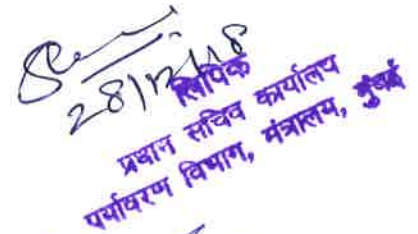 28/12/18
लिपिक
प्रधान सचिव कार्यालय
पर्यावरण विभाग, मंत्रालय, मुंबई